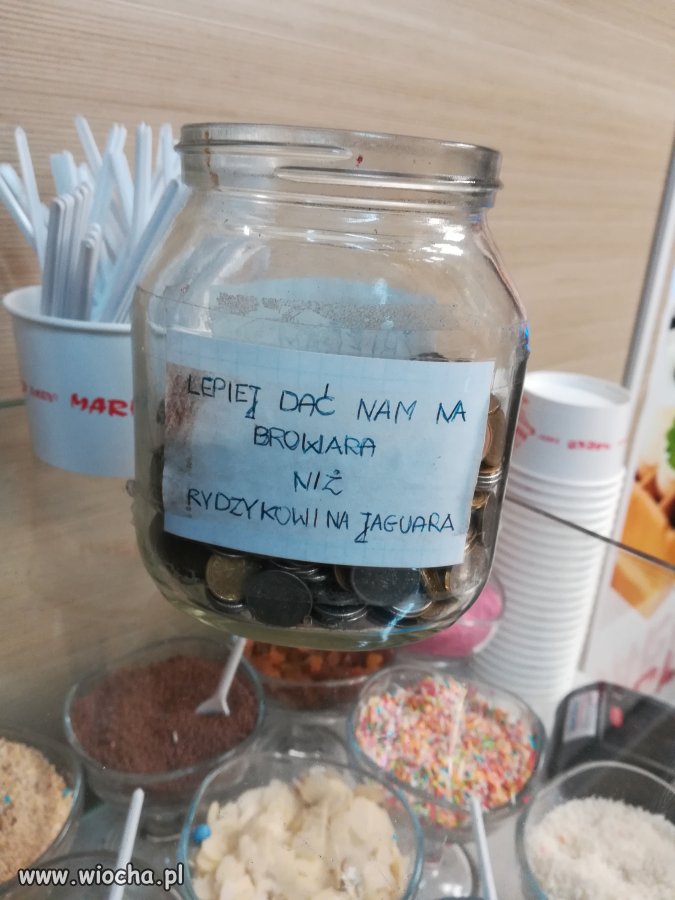 LEPIEJ DAĆ NAM NA
BROWARA
NIŻ
RYDZYKOWI NA JAGUARA
MAR
www.wiocha.pl